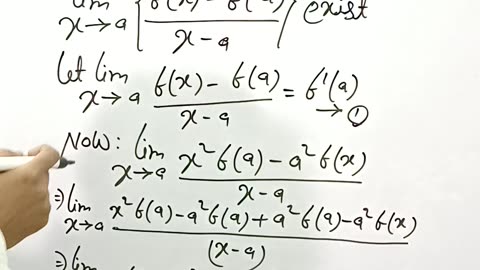 lim x→a {f(x) - f(a) / x-a} exist
Let lim x→a f(x) - f(a) / x-a = f'(a) → ①
Now: lim x→a x²f(a) - a²f(x) / x-a
⇒ lim x→a x²f(a) - a²f(a) + a²f(a) - a²f(x) / (x-a)
⇒ lim